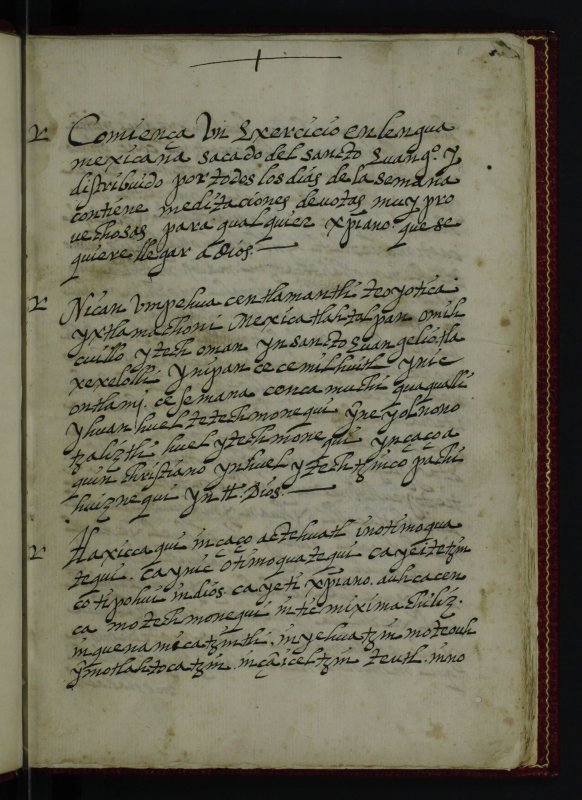 Comiença Vn Exercicio en lengua
mexicana sacado del sancto Euangº. y
distribuido por todos los dias de la semana
contiene meditaciones deuotas muy pro
uechosas para qualquier xpiano. que se
quiere llegar a Dios.
Nican Vmpehua centlamantli teoyotica
yxtlamachoni Mexicatlatolpan omih
cuillo ytech oman yn sancto Euangelio, tla
xexelolli ynipan cecemilhuitl ynic
ontlami. ce semana cenca muchi quaqualli
yhuan huel tetech monequi yneyolnono
tzaliztli huel ytech monequi ynçaço a
quin christiano ynhuel ytechtzinco pachi
huiznequi yn tt. Dios.
Tlaxiccaqui inçaço actehuatl inotimoqua
tequi. ca ynic otimoquatequi ca yeitetzin
co tipohui in dios. ca yeti xpiano. auh ca cen
ca motech monequi intic miximachiliz.
inquenamicatzintli. inyehuatzin moteouh
ymotlahtocatzin. in çã iceltzin teutl. inno